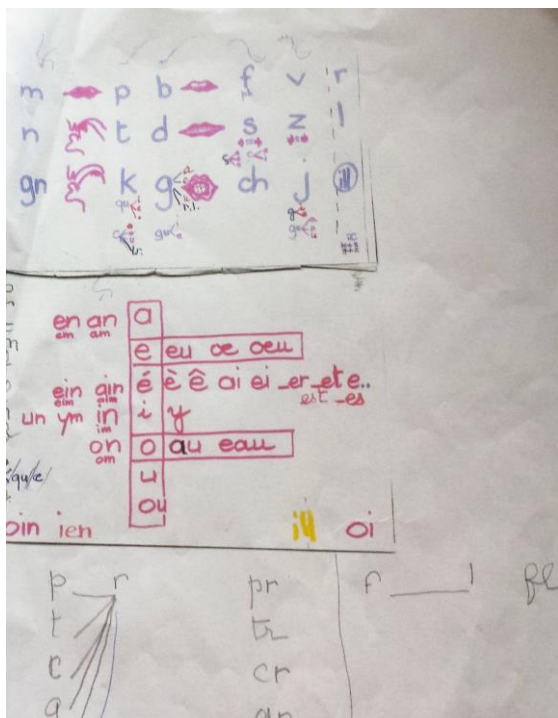 m p b f v r
n t d s z l
gn k g ch j
gu
en an a
em am
e eu oe oeu
ein ain é è ê ai ei _er _et e..
eim aim est _es
un ym in i y
im
on o au eau
om
u
/qu/c/
ou
oin ien ill oi
p r pr f l fl
t tr
c cr
g gr